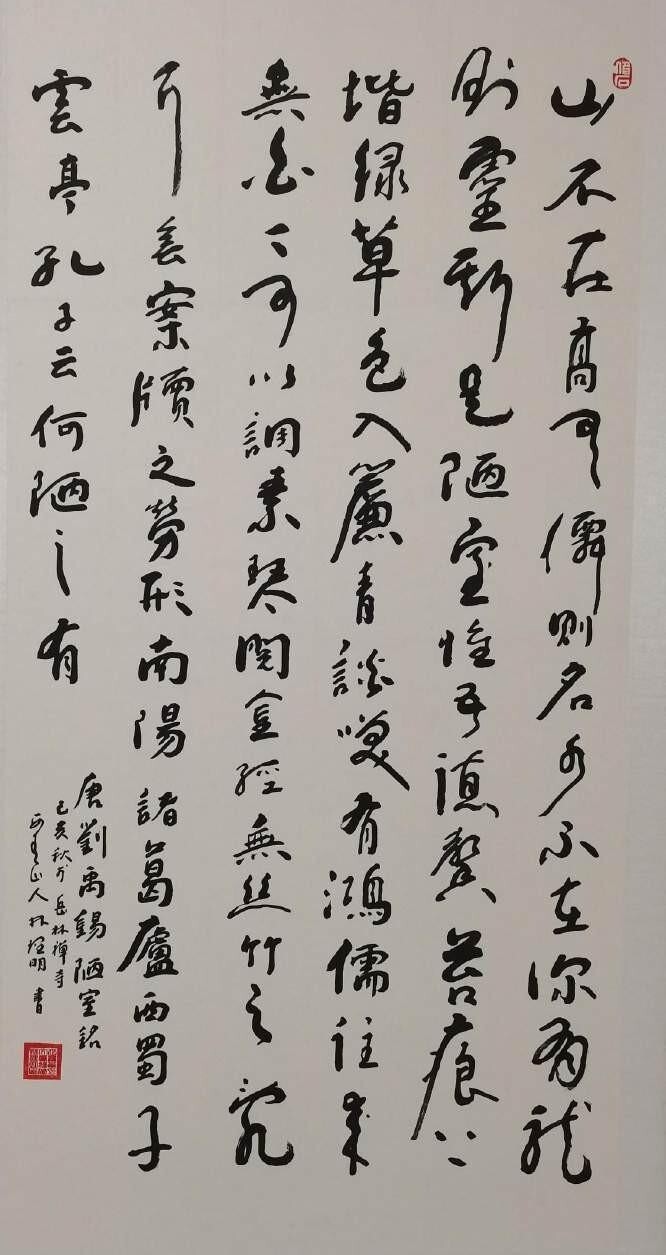 山不在高有僊則名水不在深有龍
則靈斯是陋室惟吾德馨苔痕上
堦緑草色入簾青談笑有鴻儒往來
無白丁可以調素琴閱金經無絲竹之亂
耳無案牘之勞形南陽諸葛廬西蜀子
雲亭孔子云何陋之有
唐劉禹錫陋室銘
己亥秋於岳林禅寺
山人林明書